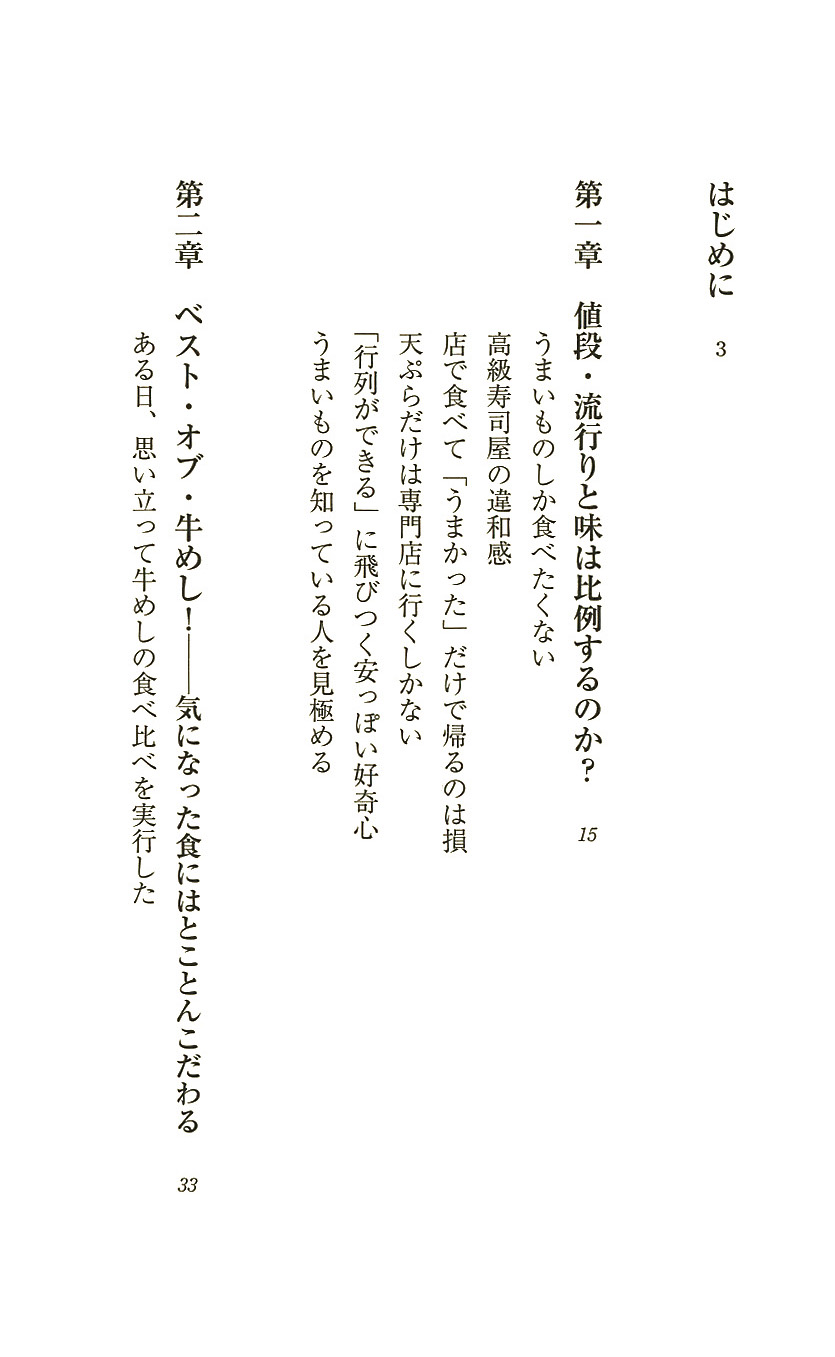 はじめに　3
第一章　値段・流行りと味は比例するのか？　15
うまいものしか食べたくない
高級寿司屋の違和感
店で食べて「うまかった」だけで帰るのは損
天ぷらだけは専門店に行くしかない
「行列ができる」に飛びつく安っぽい好奇心
うまいものを知っている人を見極める
第二章　ベスト・オブ・牛めし！――気になった食にはとことんこだわる　33
ある日、思い立って牛めしの食べ比べを実行した